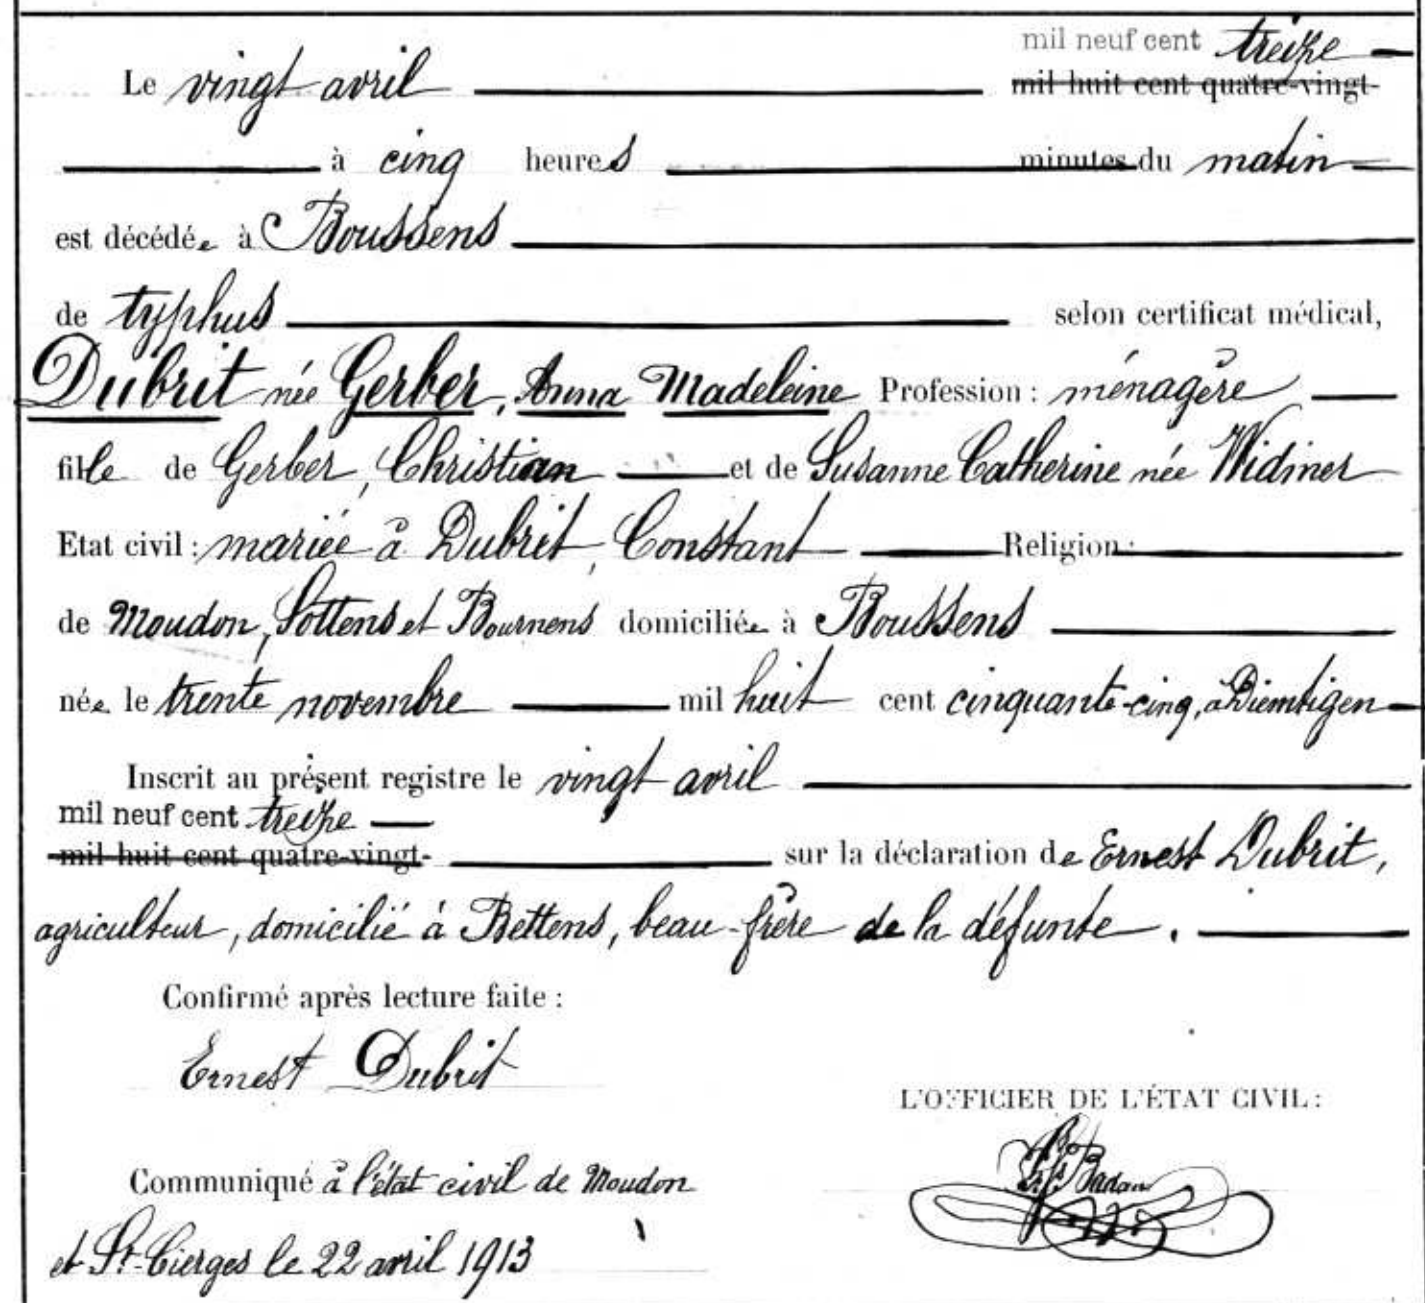 mil neuf cent treize
Le vingt avril mil huit cent quatre-vingt-
à cinq heures minutes du matin
est décédée à Boussens
de typhus selon certificat médical,
Dubrit née Gerber, Anna Madeleine Profession : ménagère
fille de Gerber, Christian et de Susanne Catherine née Widmer
Etat civil : mariée à Dubrit, Constant Religion :
de Moudon, Sottens et Bournens domiciliée à Boussens
née le trente novembre mil huit cent cinquante-cinq, à Diemtigen
Inscrit au présent registre le vingt avril
mil neuf cent treize
mil huit cent quatre-vingt- sur la déclaration de Ernest Dubrit,
agriculteur, domicilié à Bettens, beau-frère de la défunte.
Confirmé après lecture faite :
Ernest Dubrit
L'OFFICIER DE L'ÉTAT CIVIL :
Badan
Communiqué à l'état civil de Moudon
et St-Cierges le 22 avril 1913